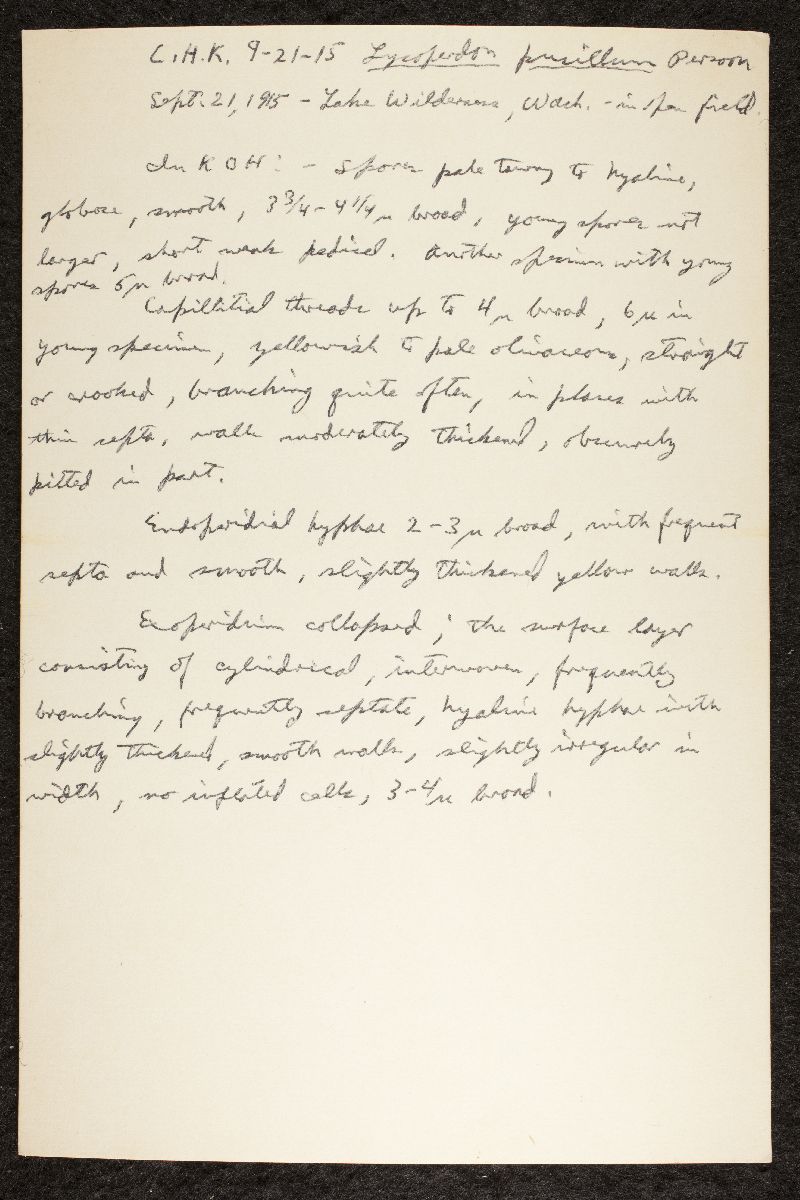 C.H.K. 9-21-15 Lycoperdon pusillum Persoon
Sept. 21, 1915 - Lake Wilderness, Wash. - in open field.
In KOH: - Spores pale tawny to hyaline,
globose, smooth, 3 3/4 - 4 1/4 µ broad, young spores not
larger, short weak pedicel. Another specimen with young
spores 6 µ broad.
Capillitial threads up to 4 µ broad, 6 µ in
young specimen, yellowish to pale olivaceous, straight
or crooked, branching quite often, in places with
thin septa, walls moderately thickened, obscurely
pitted in part.
Endoperidial hyphae 2-3 µ broad, with frequent
septa and smooth, slightly thickened yellow walls.
Exoperidium collapsed; the surface layer
consisting of cylindrical, interwoven, frequently
branching, frequently septate, hyaline hyphae with
slightly thickened, smooth walls, slightly irregular in
width, no inflated cells, 3-4 µ broad.